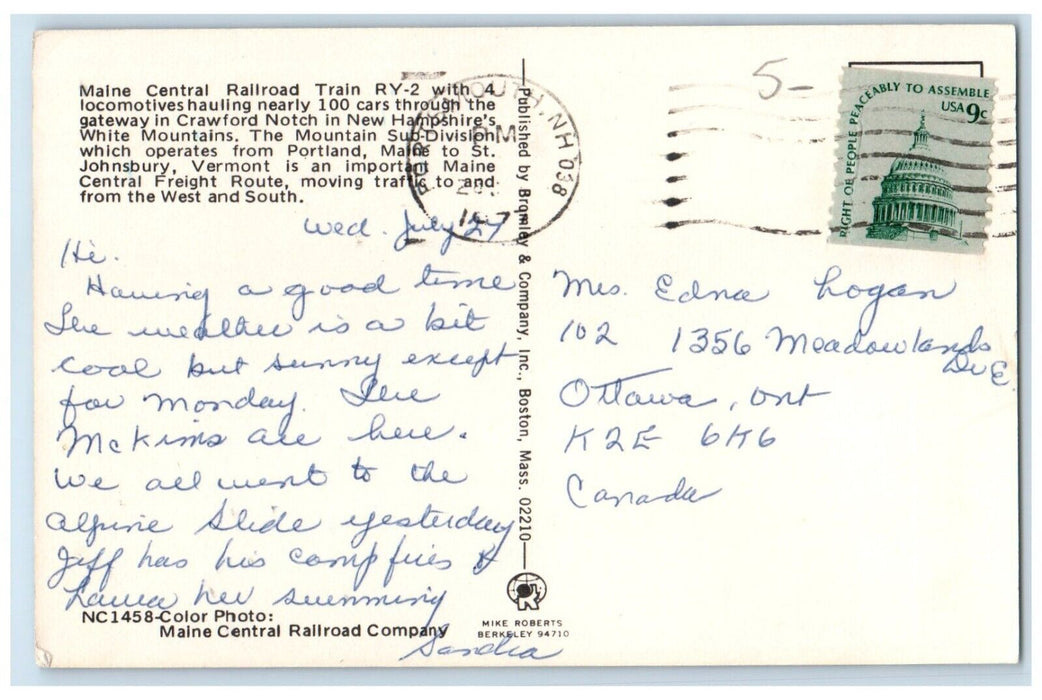 Maine Central Railroad Train RY-2 with 4
locomotives hauling nearly 100 cars through the
gateway in Crawford Notch in New Hampshire's
White Mountains. The Mountain Sub-Division
which operates from Portland, Maine to St.
Johnsbury, Vermont is an important Maine
Central Freight Route, moving traffic to and
from the West and South.
Wed. July 27
Hi.
Having a good time
The weather is a bit
cool but sunny except
for Monday. The
McKims are here.
We all went to the
alpine slide yesterday
Jeff has his campfires &
Laura her swimming
Sandra
NC1458-Color Photo:
Maine Central Railroad Company
Published by Bromley & Company, Inc., Boston, Mass. 02210
MIKE ROBERTS
BERKELEY 94710
PORTSMOUTH, NH 038
PM
5-
RIGHT OF PEOPLE PEACEABLY TO ASSEMBLE
USA 9c
Mrs. Edna Logan
102 1356 Meadowlands
Dr E.
Ottawa, Ont
K2E 6K6
Canada